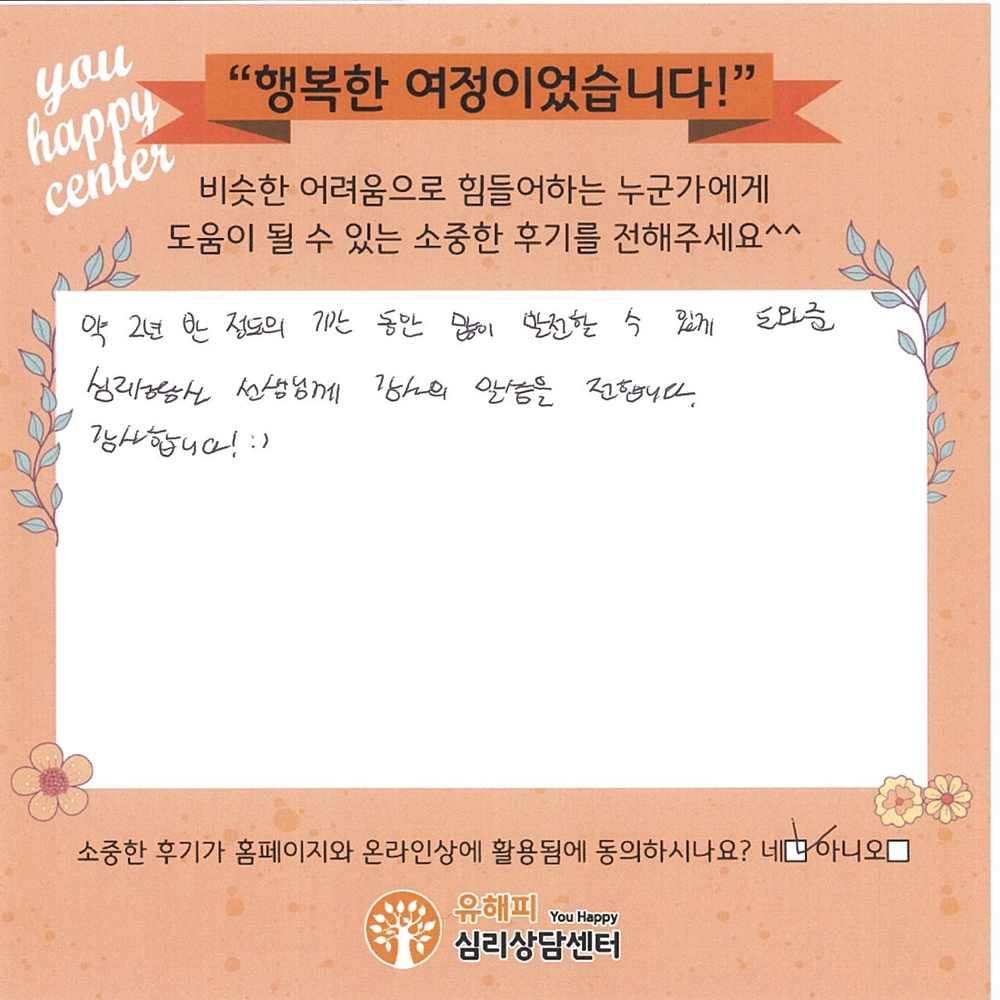 you
happy
center
“행복한 여정이었습니다!”
비슷한 어려움으로 힘들어하는 누군가에게
도움이 될 수 있는 소중한 후기를 전해주세요^^
약 2년 반 정도의 기간 동안 많이 발전할 수 있게 도와준
심리상담사 선생님께 감사의 말씀을 전합니다.
감사합니다! :)
소중한 후기가 홈페이지와 온라인상에 활용됨에 동의하시나요? 네 아니오
유해피 You Happy
심리상담센터